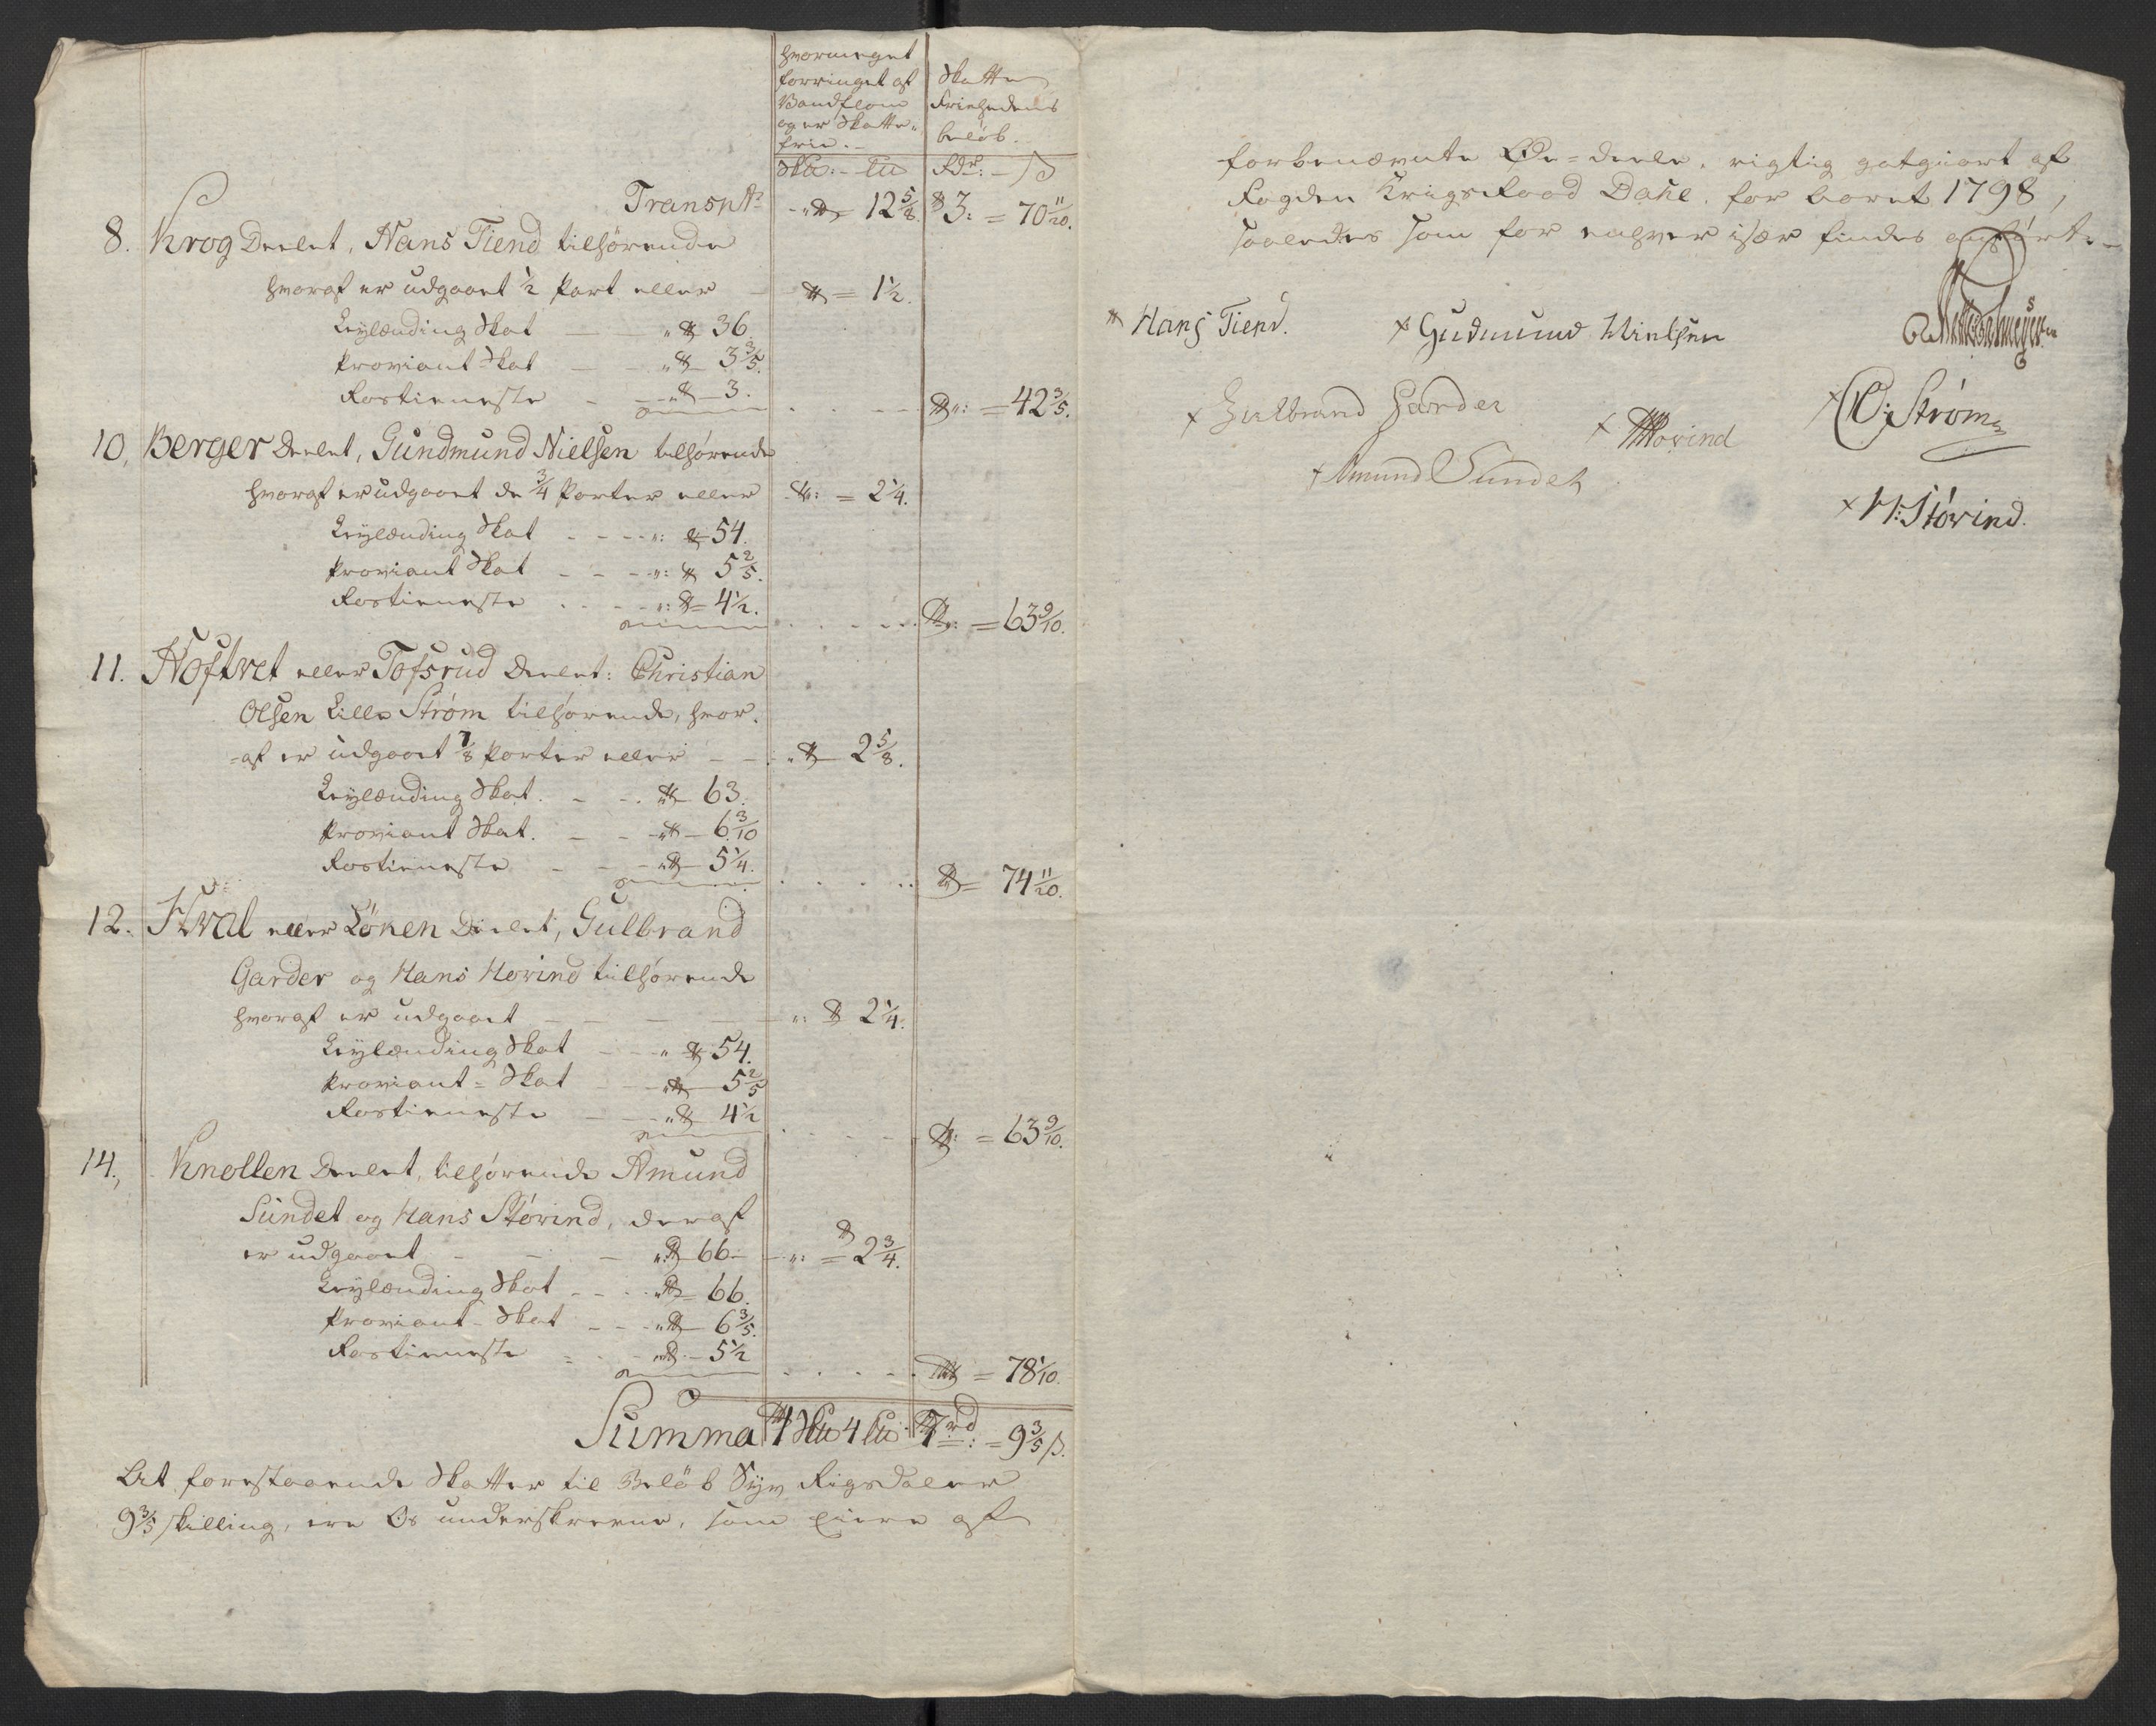 hvormeget
forringet af
Vandflom
og er Skatte-
frie.
Skatte
Friehedens
beløb.
Sku: - Lu
Rdr: - ß
Transpt. 12 5/8. 3: = 70 11/20.
8. Krog Deelet, Hans Tiend tilhørende
hvoraf er udgaaet 1/2 Part eller - = 1 1/2.
Leylænding Skat - " 36.
Proviant-Skat - " 3 3/5.
Rostieneste - " 3. = 42 3/5.
10. Berger Deelet, Gundmund Nielsen tilhørende
hvoraf er udgaaet de 3/4 Parter eller = 2 1/4.
Leylænding Skat - " 54.
Proviant Skat - " 5 2/5.
Rostieneste - " 4 1/2. = 63 9/10.
11. Hoftvet eller Tofsrud Deelet: Christian
Olsen Lille Strøm tilhørende, hvor-
=af er udgaaet 7/8 Parter eller - - 2 5/8.
Leylænding Skat. - " 63.
Proviant Skat. - " 6 3/10
Rostieneste - " 5 1/4. = 74 11/20.
12. Hval eller Löken Deelet, Gulbrand
Garder og Hans Hovind tilhørende
hvoraf er udgaaet - 2 1/4.
Leylænding Skat - " 54.
Proviant-Skat - " 5 2/5
Rostieneste - " 4 1/2 = 63 9/10.
14., Knollen Deelet, tilhørende Amund
Sundet og Hans Støvind, deraf
er udgaaet - " 66 - = 2 3/4.
Leylænding Skat - " 66.
Proviant-Skat - " 6 3/5.
Rostieneste = " 5 1/2 = 78 1/10.
Summa 1 Sku 4 Lu 7 rd: = 9 3/5 ß.
At forestaaende Skatter til Beløb Syv Rigsdaler
9 3/5 skilling, ere Os underskrevne, som Eiere af
forbenævnte Øde-deele, rigtig godgiort af
Fogden Krigsraad Dahl for Aaret 1798,
saaledes som for enhver især findes anførte.
Hans Tiend.
x Gudmund Nielsen
x Gulbrand Garder
x HHovind
x CO: Strøm
x Amund Sundet
x H: Støvind.